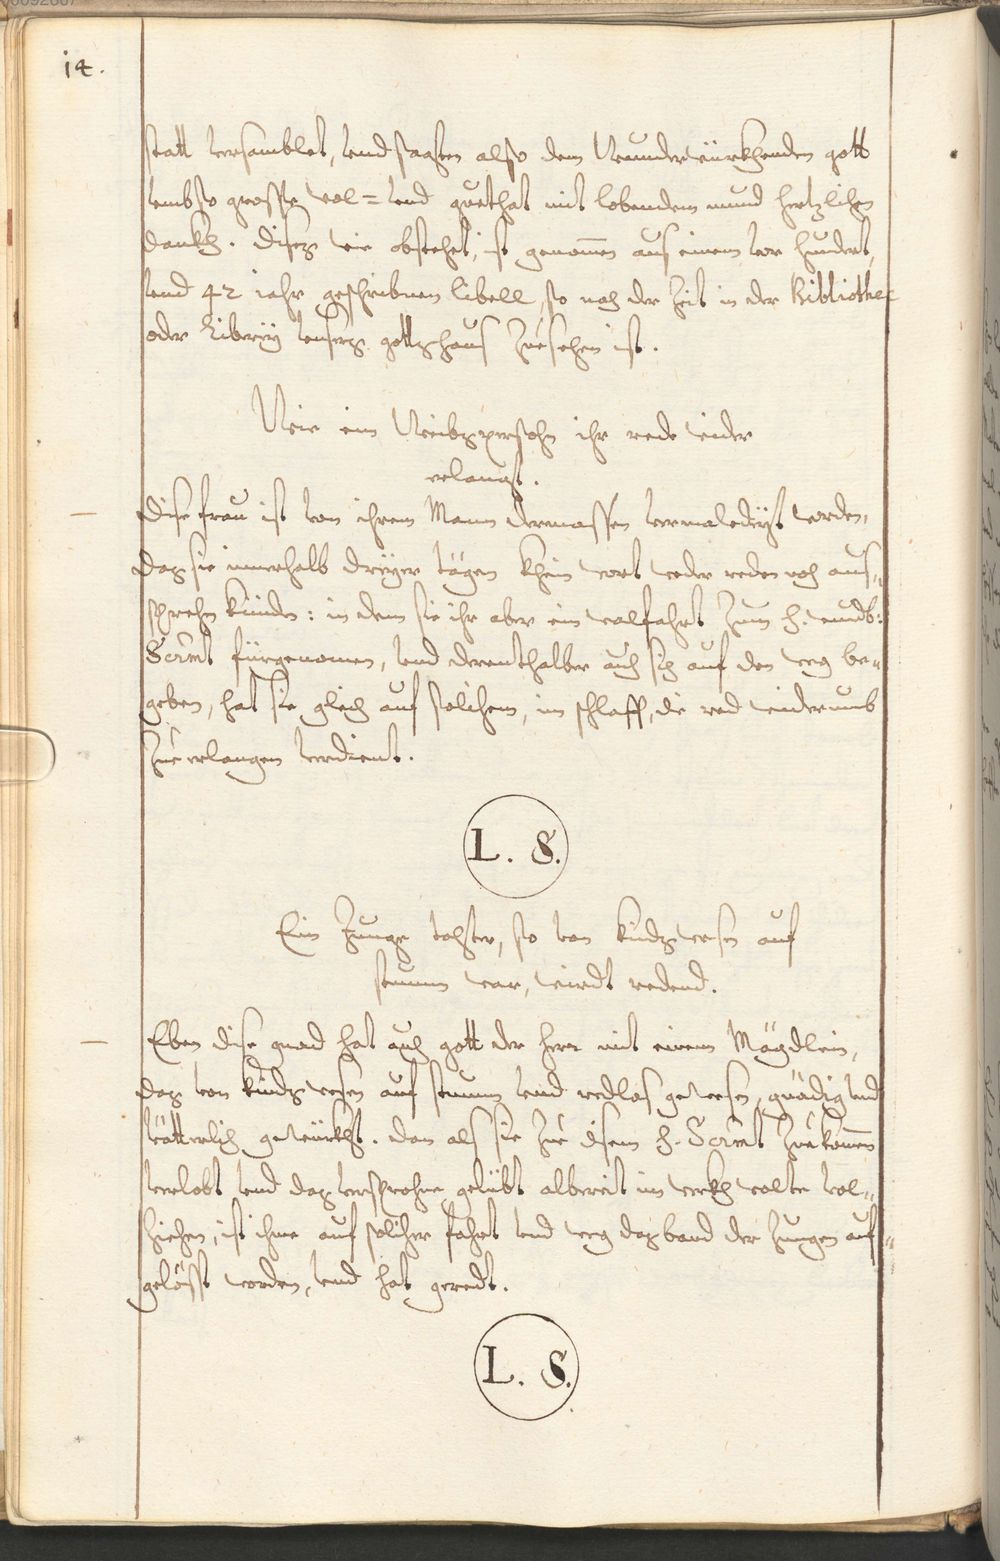 14.
statt versamblet, vnd sagten also dem Wunderwürkhenden gott
vmb so grosse wol= vnd guethat mit lobendem mund hertzlichen
dankh. Dises wie obstehet, ist genomen aus einem vor hundert,
vnd 42 iahr geschribnen libell, so noch der Zeit in der Bibliothec
oder Liberÿ vnsers gottshaus Zuesehen ist.
Wie ein Weibspersohn ihr rede wider
erlangt.
Dise frau ist von ihrem Mann dermassen vermaledeÿt worden,
das sie innerhalb dreÿer tägen khein wort weder reden noch aus„
sprechen künden: in dem sie ihr aber ein walfahrt Zum H. wundb:
Scrmt fürgenomen, vnd derenthalber auch sich auf den weg be„
geben, hat sie gleich auf solichem, im schlaff, die red widerumb
Zue erlangen verdient.
L. S.
Ein Junge tohter, so von kinds wesen auf
stumm war, wirdt redend.
Eben dise gnad hat auch gott der herr mit einem Mägdlein,
das von kinds wesen auf stumm vnd redlos gewesen, gnädig vnd
vätterlich gewürkht. Dan als sie Zue disem H. Scrmt Zuekomen
verlobt vnd das versprohne gelübt albereit im werkh wolte vol„
Ziehen, ist ihme auf solicher fahrt vnd weg das band der Zungen auf„
gelösst worden, vnd hat geredt.
L. S.